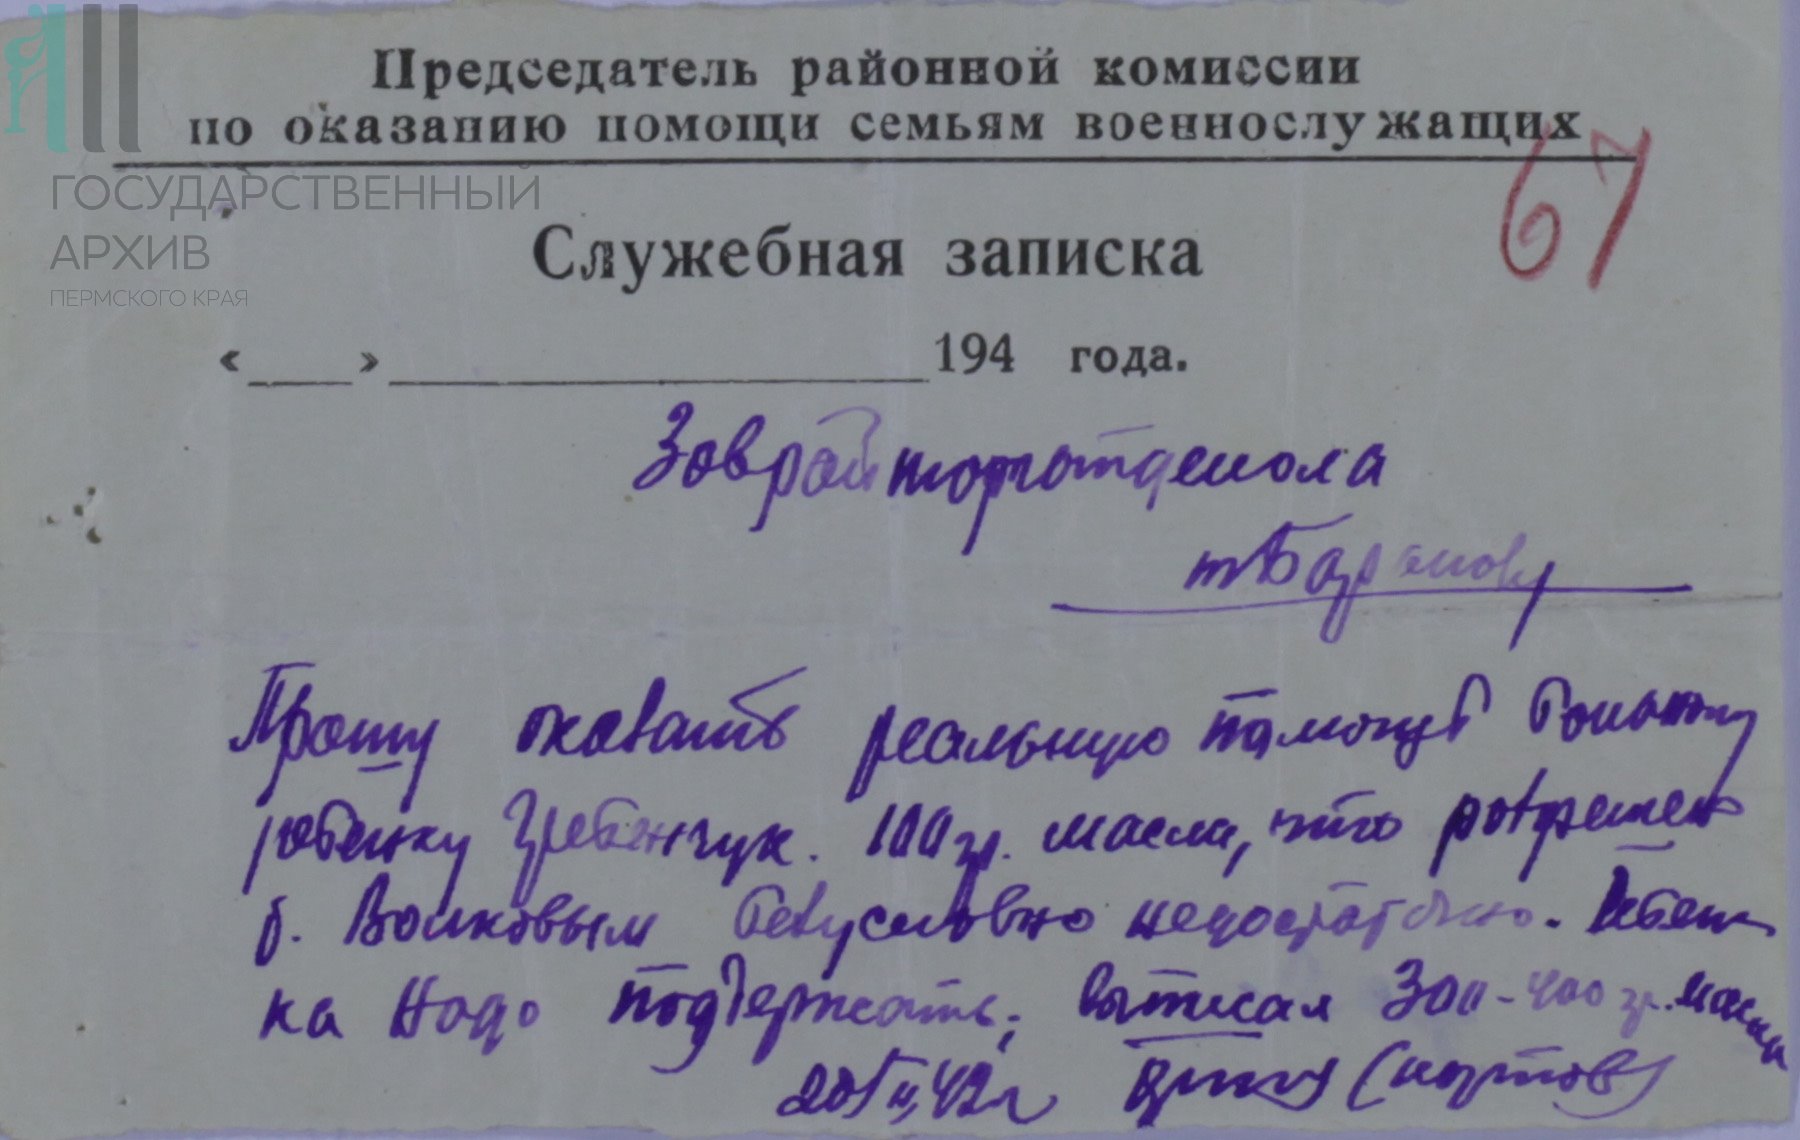 Председатель районной комиссии
по оказанию помощи семьям военнослужащих
67
ГОСУДАРСТВЕННЫЙ
АРХИВ
ПЕРМСКОГО КРАЯ
Служебная записка
«___» ____________ 194 года.
Заврайторготдела
т Баранову
Прошу оказать реальную помощь больному
ребенку Гребенчук. 100 гр. масла, что разрешено
б. Волковым безусловно недостаточно. Ребен
ка надо поддержать, выписал 300-400 гр. масла
20/II 42 г